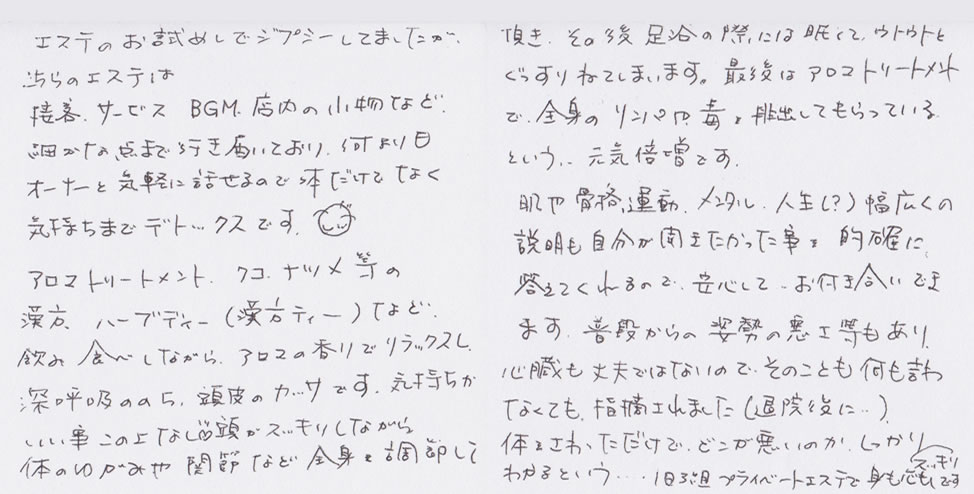 エステのお試めしでジプシーしてましたが、
こちらのエステは
接客、サービス BGM、店内の小物など、
細かな点まで行き届いており、何より
オーナーと気軽に話せるので体だけでなく
気持ちまでデトックスです。
アロマトリートメント、クコ、ナツメ等の
漢方、ハーブティー(漢方ティー)など、
飲み食べしながら、アロマの香りでリラックスし、
深呼吸ののち、頭皮のカッサです。気持ちが
いい事この上なし 頭がスッキリしながら
体のゆがみや関節など全身を調節して
頂き、その後足浴の際には眠くて、ウトウトと
ぐっすりねてしまいます。最後はアロマトリートメント
で、全身のリンパや毒を排出してもらっている
という、、元気倍増です。
肌や骨格、運動、メンタル、人生(?)幅広くの
説明も自分が聞きたかった事を的確に
答えてくれるので、安心して‥お付き合いでき
ます。普段からの姿勢の悪さ等もあり、
心臓も丈夫ではないので、そのことも何も言わ
なくても、指摘されました(退院後に‥)
体をさわっただけで、どこが悪いのか、しっかり
わかるという‥‥1日3組プライベートエステで身も心もスッキリです